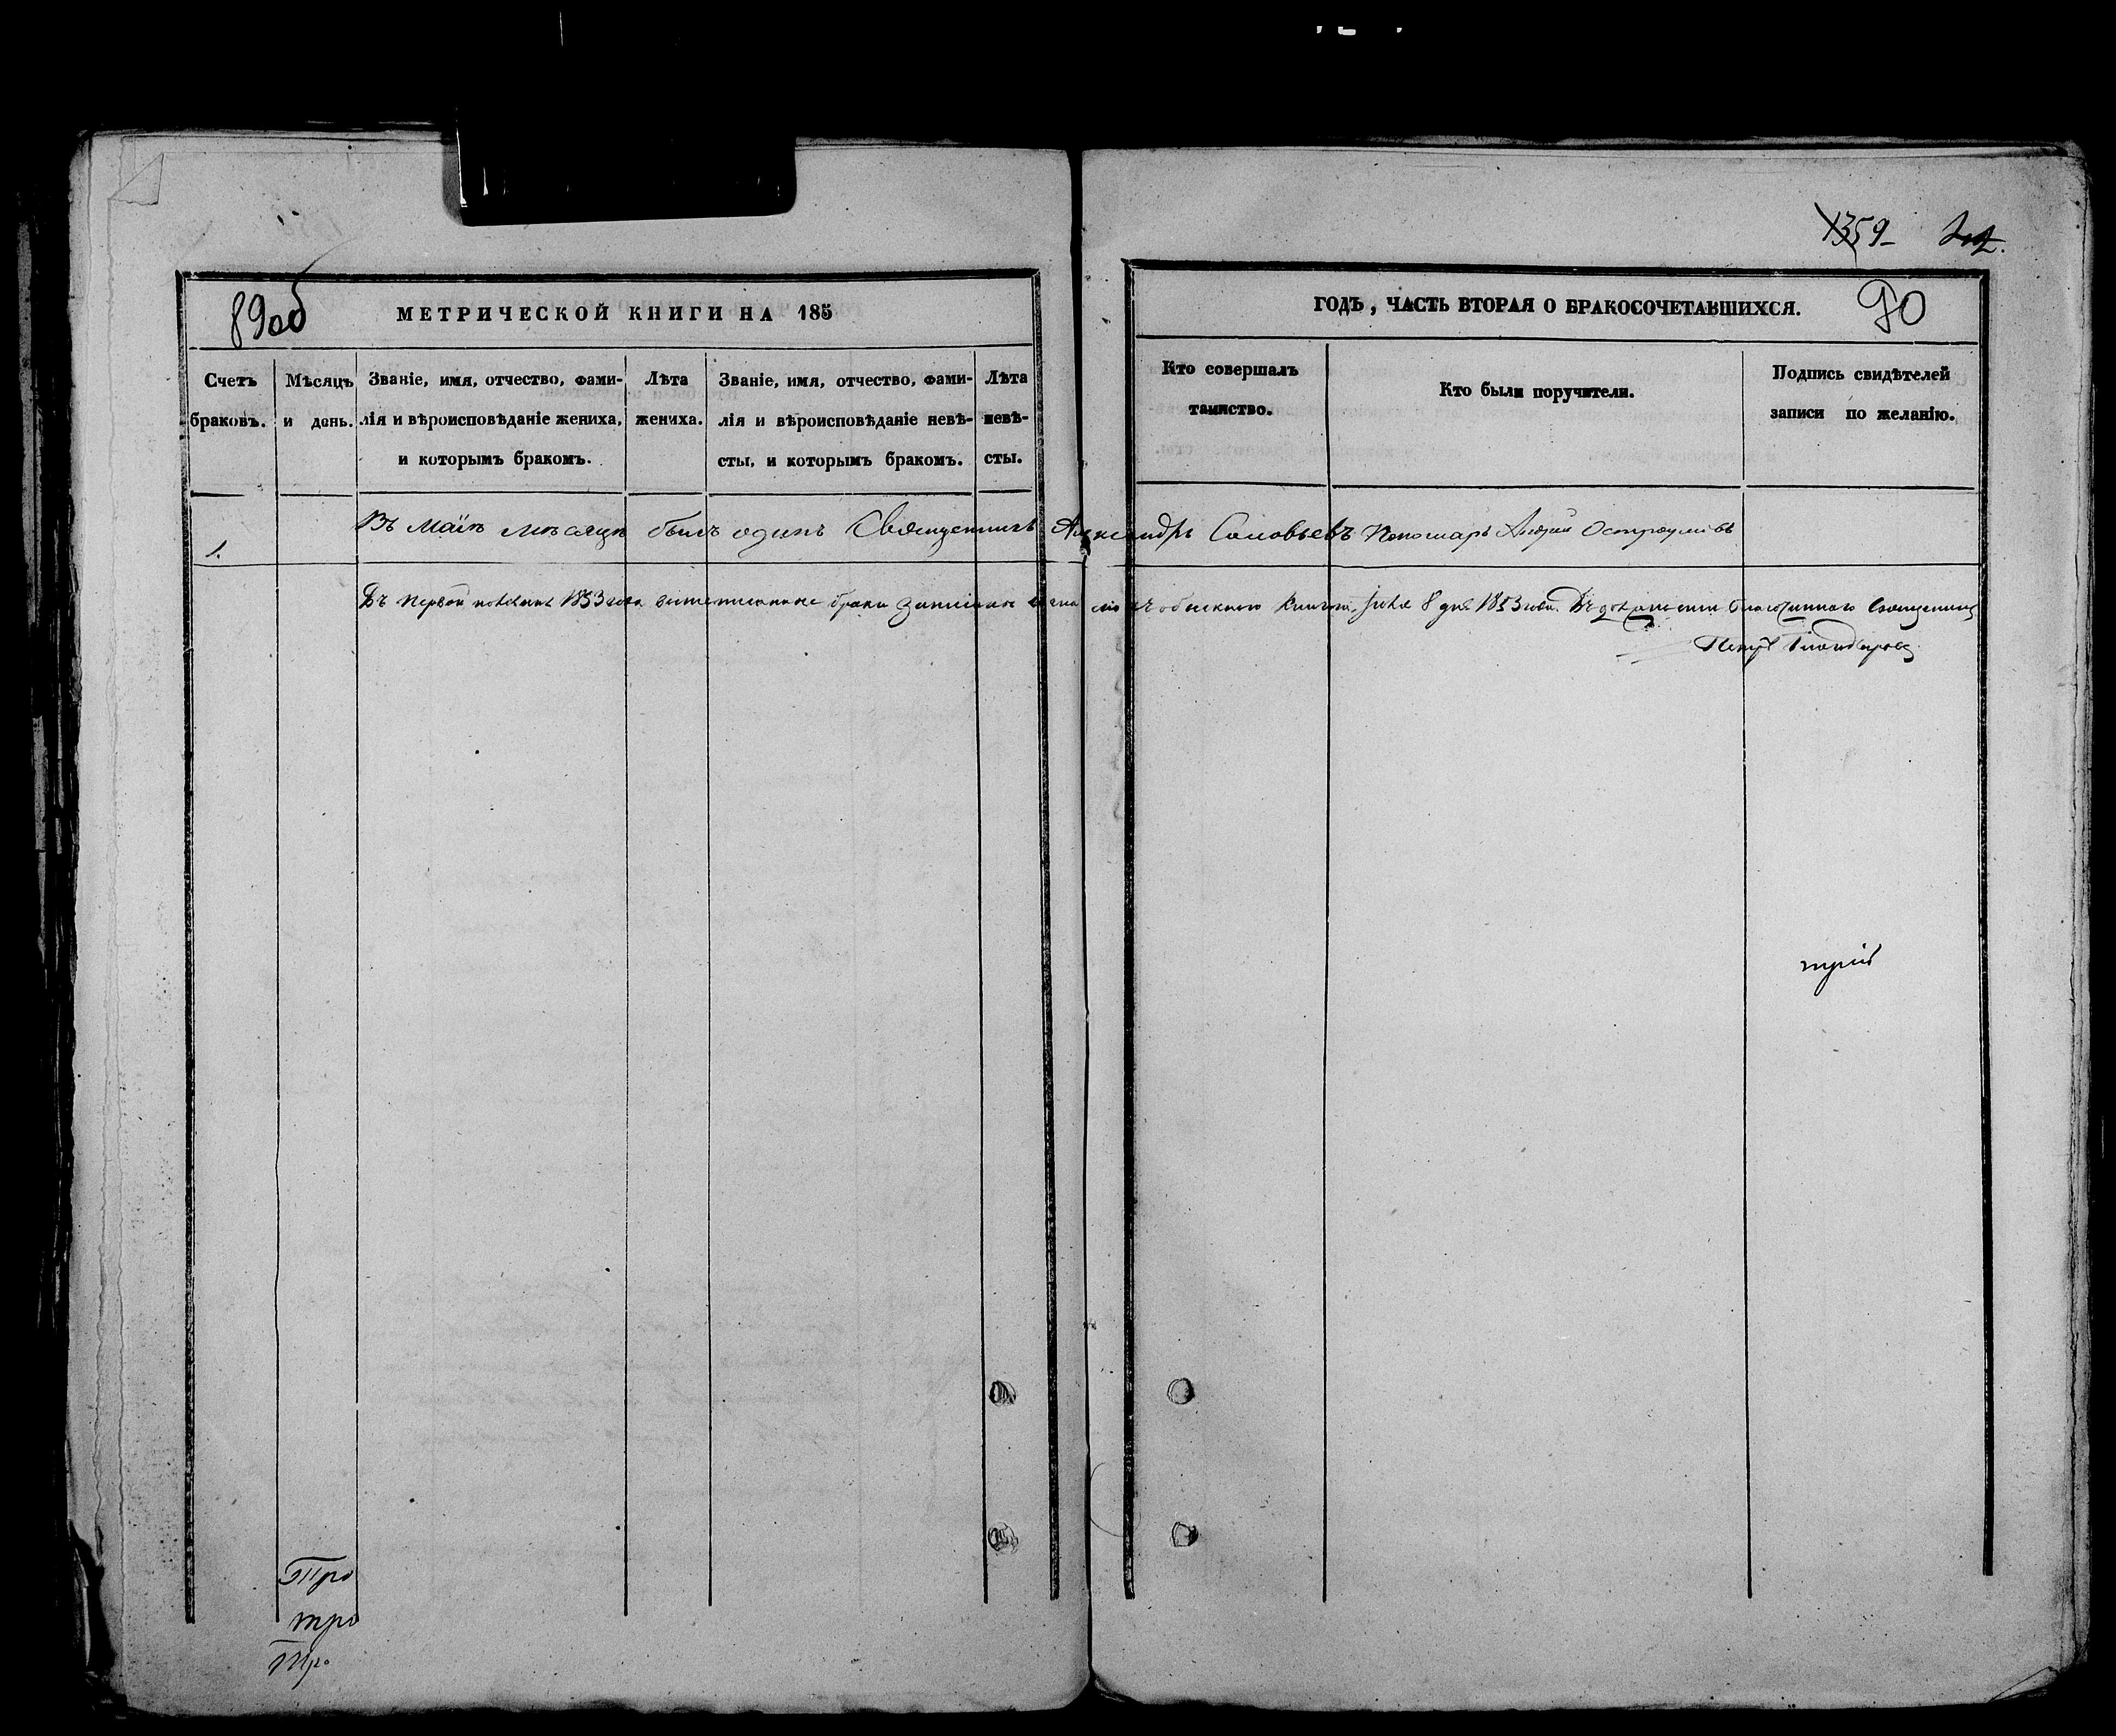 1359 
89об
МЕТРИЧЕСКОЙ КНИГИ НА 185
ГОДЪ, ЧАСТЬ ВТОРАЯ О БРАКОСОЧЕТАВШИХСЯ.
90
Счетъ браковъ.
Мѣсяцъ и день.
Званіе, имя, отчество, фами-
лія и вѣроисповѣданіе жениха,
и которымъ бракомъ.
Лѣта жениха.
Званіе, имя, отчество, фами-
лія и вѣроисповѣданіе невѣ-
сты, и которымъ бракомъ.
Лѣта невѣ-
сты.
Кто совершалъ
таинство.
Кто были поручители.
Подпись свидѣтелей
записи по желанію.
1.
Въ Маiѣ мѣсяцѣ былъ одинъ Священникъ Александръ Соловьевъ Пономарь Андрей Остроумовъ
Въ первой половинѣ 1853 года браки записаны въ обыскную книгу. Іюля 8 дня 1853 года. благочинного Священникъ
Петръ
трiй
Тро
тро
Тр.